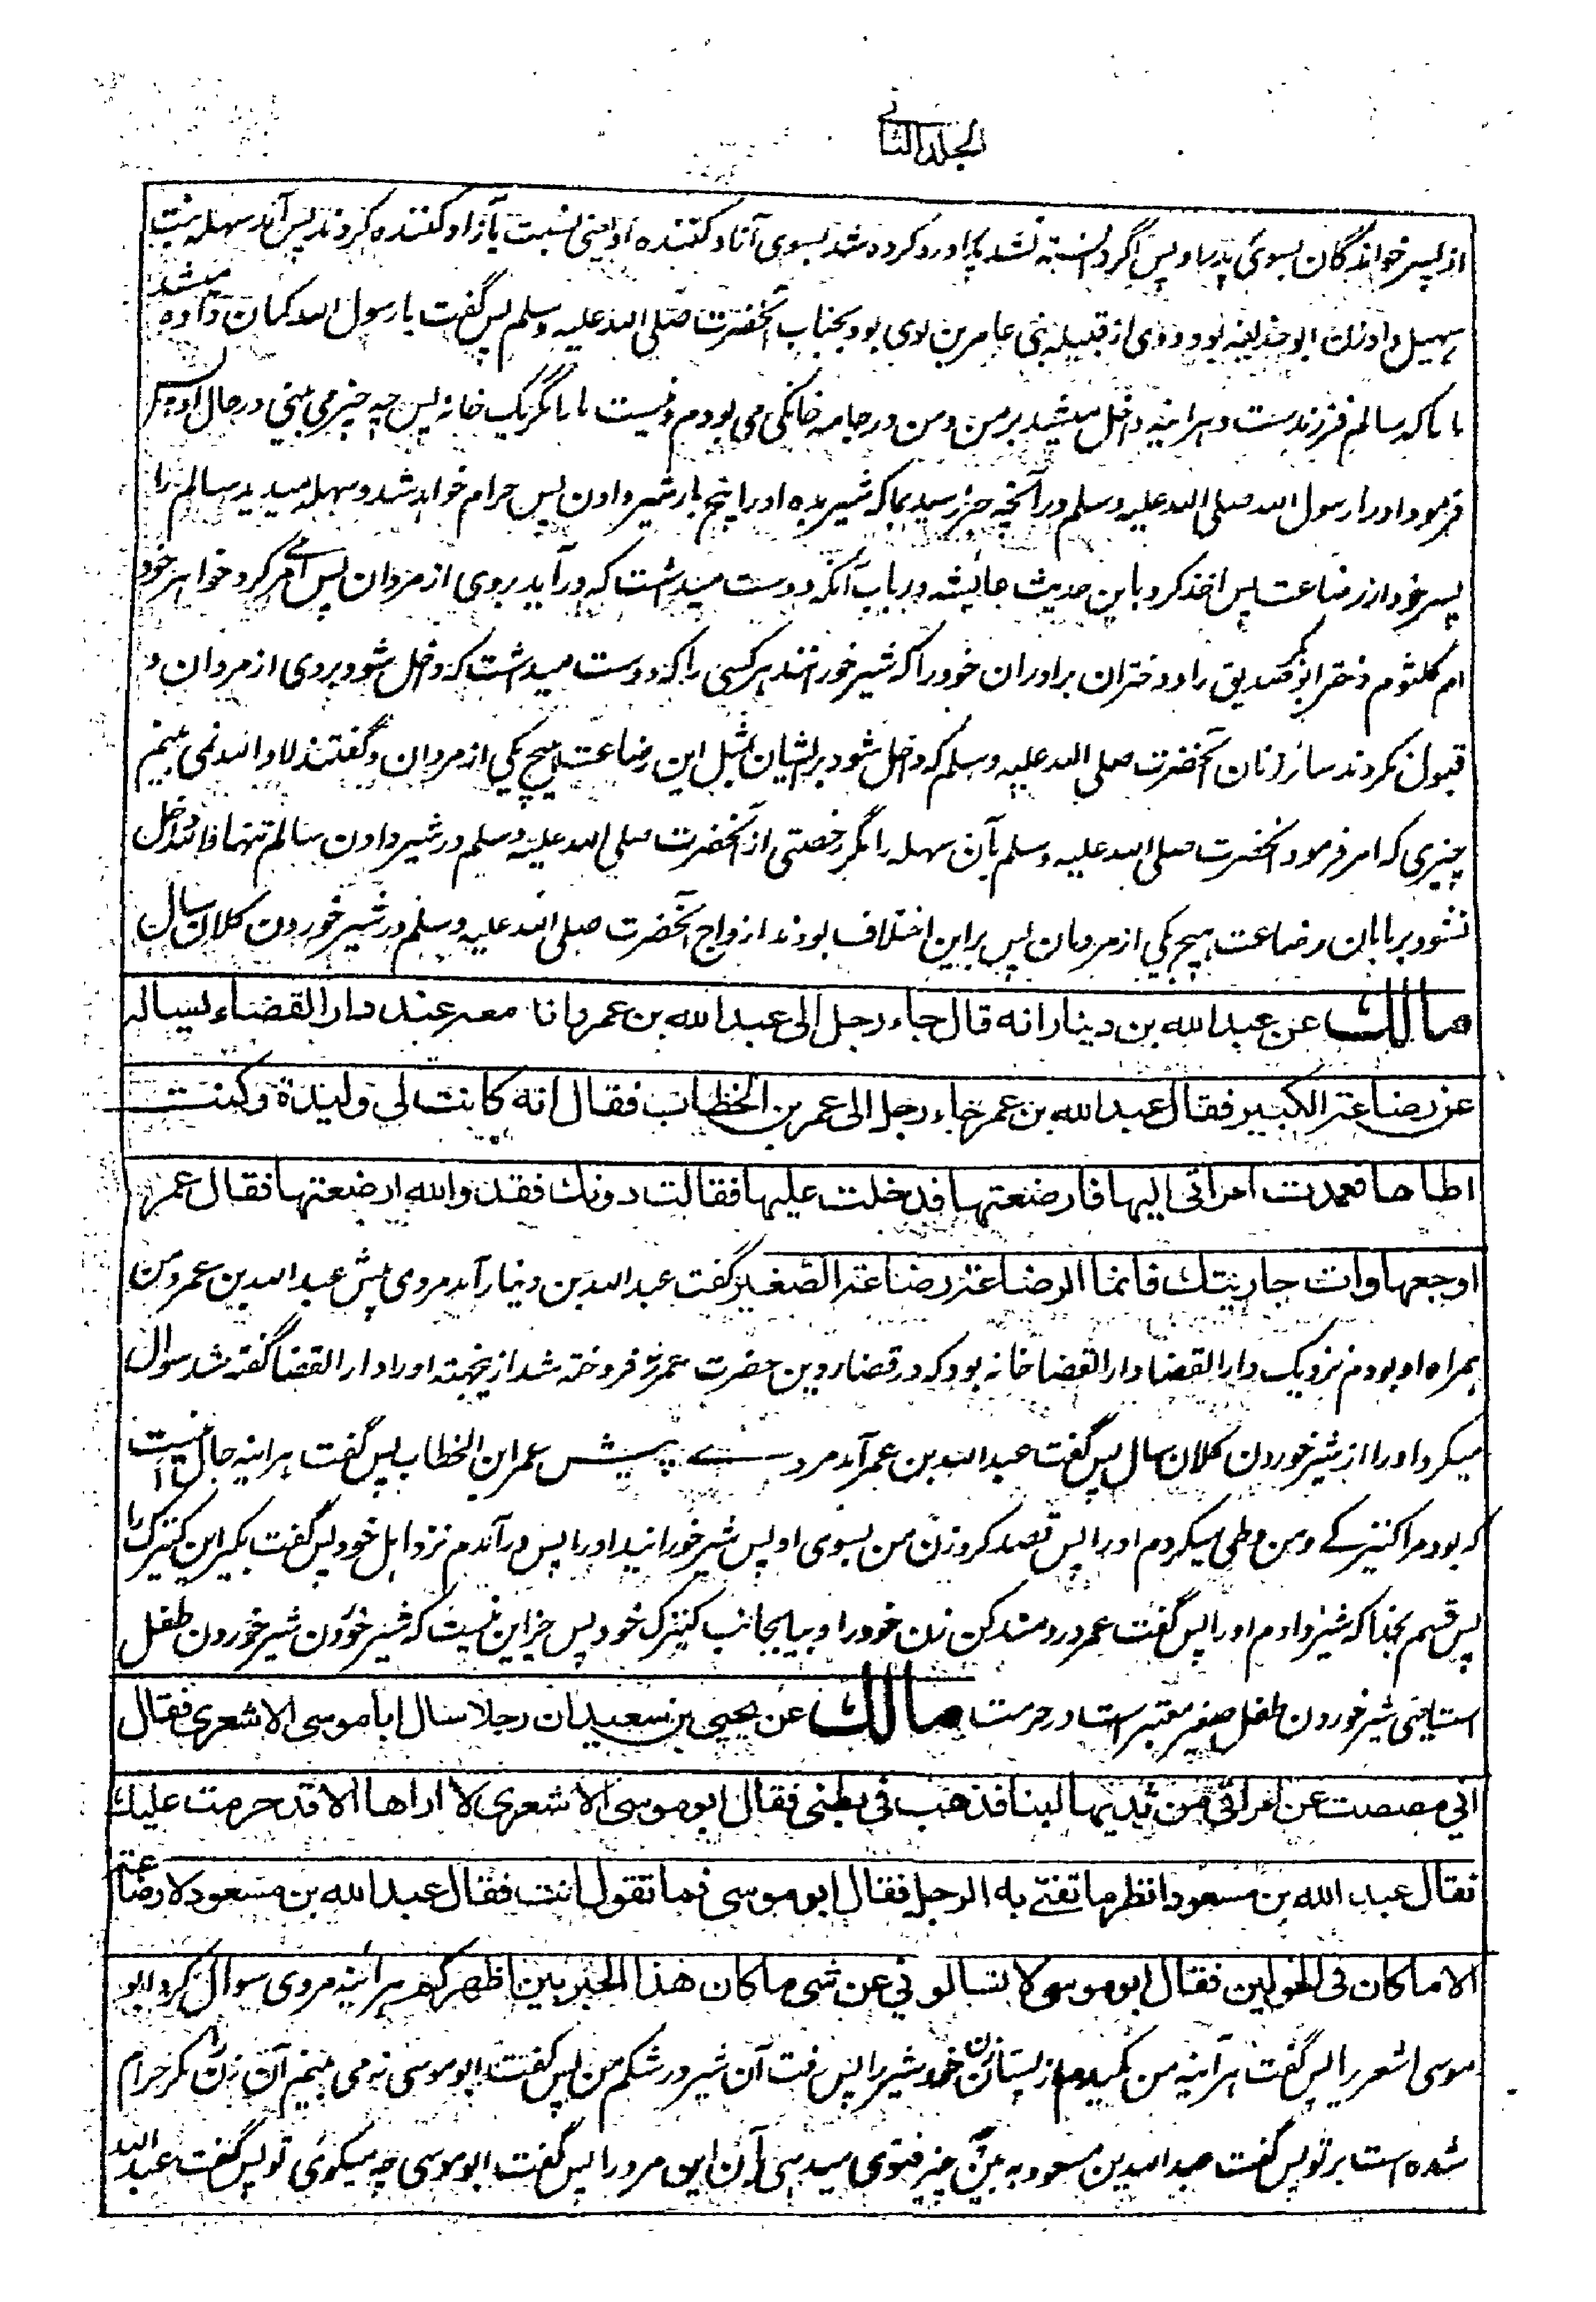 الجلد الثانی
از پسر خواندگان بسوی پدر او پس اگر دانسته نشد پدر او رد کرده شد بسوی آزاد کننده او یعنی نسبت بآزاد کننده کردند پس آمد سهله بنت
سهیل و او زن ابو حذیفه بود و وی از قبیله بنی عامر بن لوی بود بجناب آنحضرت صلی الله علیه وسلم پس گفت یا رسول الله گمان داده میشد
ما را که سالم فرزندست و هرآینه داخل میشد بر من و من در جامه خانگی می بودم و نیست ما را مگر یک خانه پس چه چیز می بینی در حال او پس
فرمود او را رسول الله صلی الله علیه وسلم در آنچه خبر رسید بما که شیر بده او را پنج بار شیر دادن پس حرام خواهد شد و سهله میدید سالم را
پسر خود از رضاعت پس اخذ کرد باین حدیث عائشه در باب آنکه دوست میداشت که در آید بر وی از مردان پس امر میکرد خواهر خود
ام کلثوم دختر ابو بکر صدیق را و دختران برادران خود را که شیر خورانند هر کسی را که دوست میداشت که داخل شود بر وی از مردان و
قبول نکردند سائر زنان آنحضرت صلی الله علیه وسلم که داخل شود بر ایشان بمثل این رضاعت هیچ یکی از مردان و گفتند لا والله نمی بینیم
چیزی که امر فرمود آنحضرت صلی الله علیه وسلم بآن سهله را مگر رخصتی از آنحضرت صلی الله علیه وسلم در شیر دادن سالم تنها والله داخل
نشود بر ما بان رضاعت هیچ یکی از مردمان پس بر این اختلاف بودند ازواج آنحضرت صلی الله علیه وسلم در شیر خوردن کلان سال
مالك عن عبد الله بن دینار انه قال جاء رجل الی عبد الله بن عمر وانا معه عند دار القضاء یساله
عن رضاعة الکبیر فقال عبد الله بن عمر جاء رجل الی عمر بن الخطاب فقال انه کانت لی ولیدة وکنت
اطاها فعمدت امراتی الیها فارضعتها فدخلت علیها فقالت دونك فقد والله ارضعتها فقال عمر
اوجعها وائت جاریتك فانما الرضاعة رضاعة الصغیر گفت عبد الله بن دینار آمد مردی پیش عبد الله بن عمر و من
همراه او بودم نزدیک دار القضا دار القضا خانه بود که در قضاء دین حضرت عمر فروخته شد ازینجهت او را دار القضا گفته شد سوال
میکرد او را از شیر خوردن کلان سال پس گفت عبد الله بن عمر آمد مردے پیش عمر ابن الخطاب پس گفت هرآینه حال اینست
که بود مرا کنیزکے و من وطی میکردم او را پس قصد کرد زن من بسوی او پس شیر خورانید او را پس در آمدم نزد اهل خود پس گفت بگیر این کنیزک را
پس قسم بخدا که شیر دادم او را پس گفت عمر دردمند کن زن خود را و بیا بجانب کنیزک خود پس جز این نیست که شیر خوردن شیر خوردن طفل
است یعنی شیر خوردن طفل صغیر معتبر است در حرمت مالك عن یحیی بن سعید ان رجلا سال ابا موسی الاشعری فقال
انی مصصت عن امراتی من ثدیها لبنا فذهب فی بطنی فقال ابو موسی الاشعری لا اراها الا قد حرمت علیك
فقال عبد الله بن مسعود انظر ما تفتی به الرجل فقال ابو موسی فما تقول انت فقال عبد الله بن مسعود لا رضاعة
الا ما کان فی الحولین فقال ابو موسی لا تسالونی عن شی ما کان هذا الحبر بین اظهرکم هرآینه مردی سوال کرد ابو
موسی اشعری را پس گفت هرآینه من مکیدم از پستان زن خود شیر را پس رفت آن شیر در شکم من پس گفت ابو موسی نه می بینم آن زن را مگر حرام
شده است بر تو پس گفت عبد الله بن مسعود به بین چه چیز فتوی میدهی بآن این مرد را پس گفت ابو موسی چه میگوئی تو پس گفت عبد الله